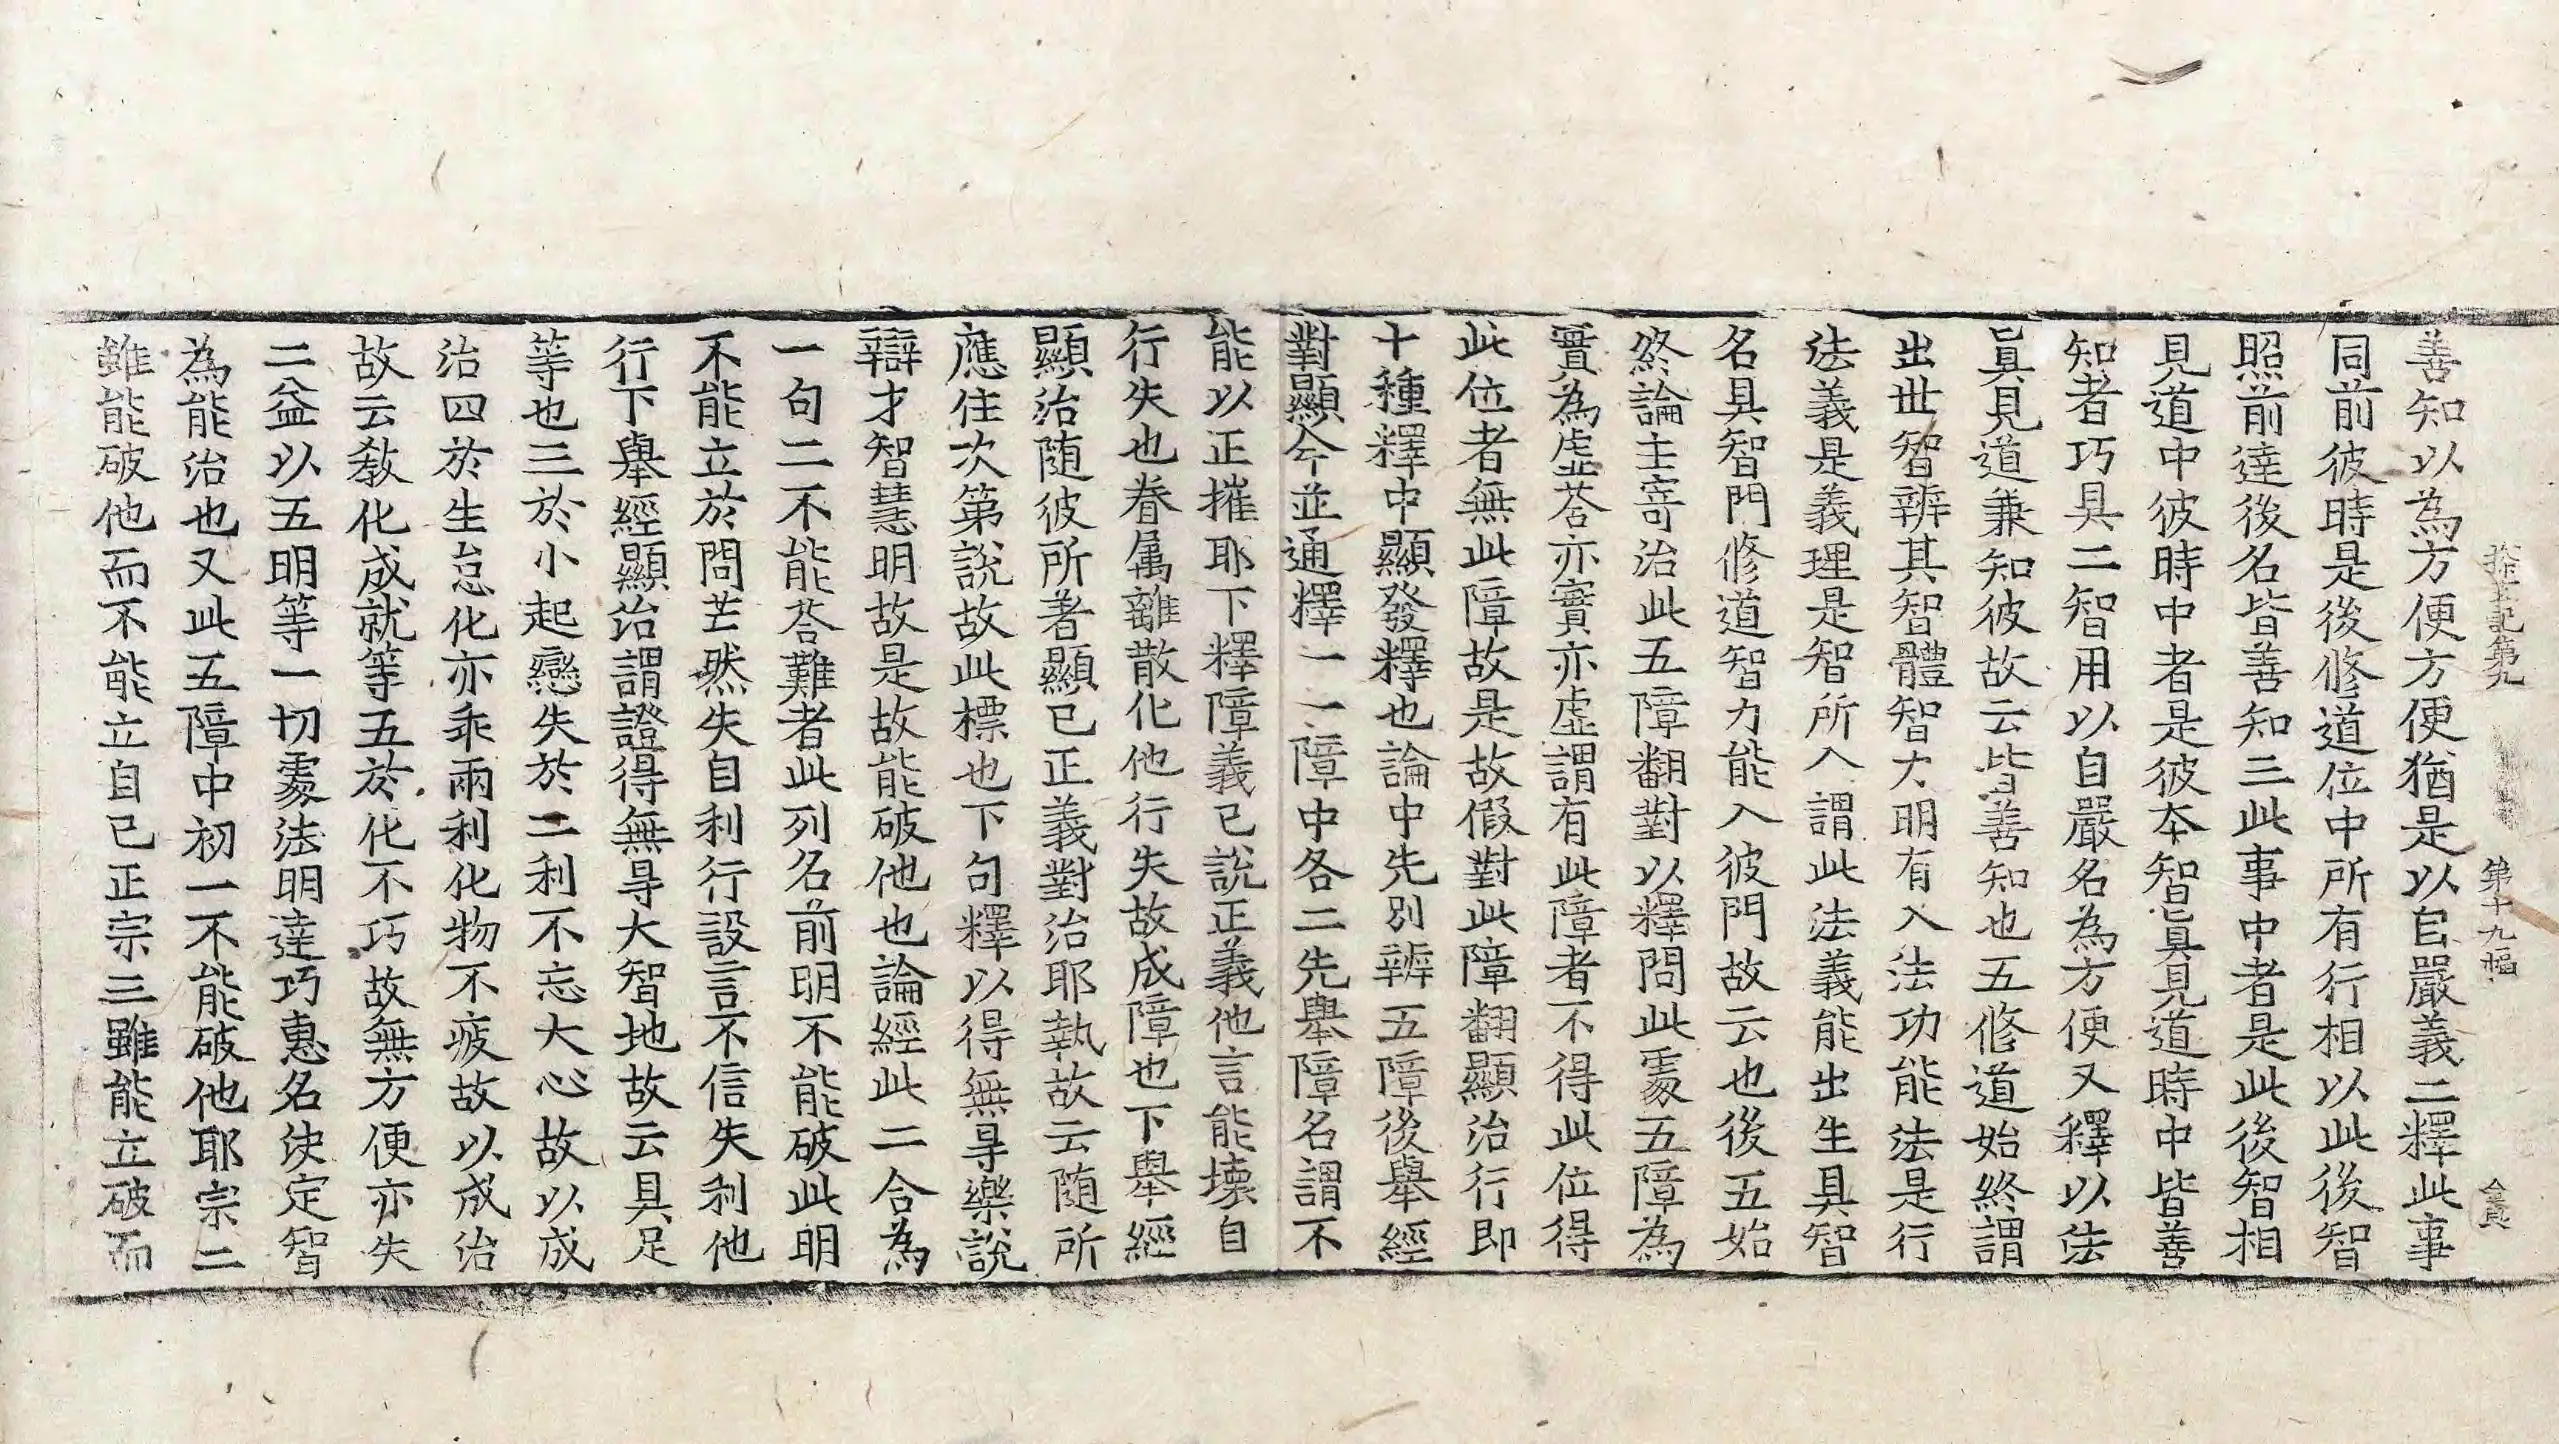 拾玄記第九　第十九幅　僉員
善知以為方便方便猶是以自嚴義二釋此事
同前彼時是後修道位中所有行相以此後智
照前達後名皆善知三此事中者是此後智相
見道中彼時中者是彼本智眞見道時中皆善
知者巧具二智用以自嚴名為方便又釋以法
眞見道兼知彼故云皆善知也五修道始終謂
出世智辨其智體智大明有入法功能法是行
法義是義理是智所入謂此法義能出生具智
名具智門修道智力能入彼門故云也後五始
終論主寄治此五障翻對以釋問此䖏五障為
實為虛荅亦實亦虛謂有此障者不得此位得
此位者無此障故是故假對此障翻顯治行即
十種釋中顯發釋也論中先別辨五障後舉經
對顯今並通釋一一障中各二先舉障名謂不
能以正摧耶下釋障義已說正義他言能壞自
行失也眷属離散化他行失故成障也下舉經
顯治随彼所者顯已正義對治耶執故云随所
應住次第說故此標也下句釋以得無㝵樂說
辯才智慧明故是故能破他也論經此二合為
一句二不能荅難者此列名前明不能破此明
不能立於問芒然失自利行設言不信失利他
行下舉經顯治謂證得無㝵大智地故云具足
等也三於小起戀失於二利不忘大心故以成
治四於生怠化亦乖兩利化物不疲故以成治
故云教化成就等五於化不巧故無方便亦失
二益以五明等一切䖏法明達巧惠名决定智
為能治也又此五障中初一不能破他耶宗二
雖能破他而不能立自己正宗三雖能立破而